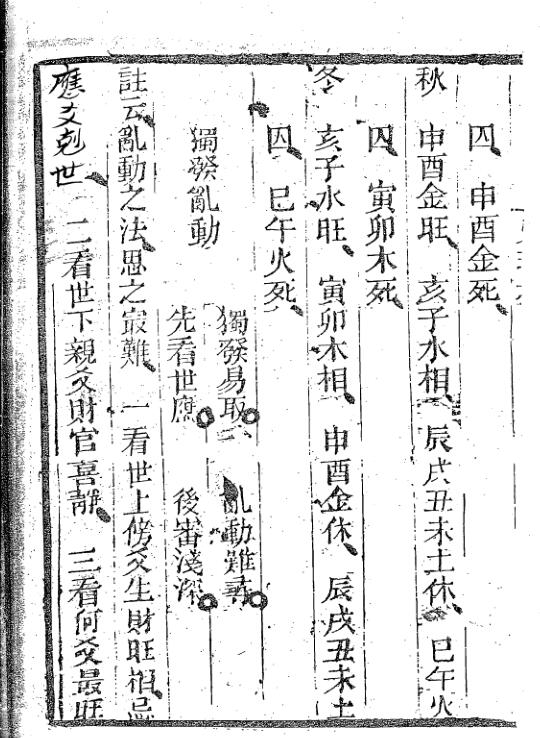 囚 申酉金死
秋 申酉金旺 亥子水相 辰戌丑未土休 巳午火
囚 寅卯木死
冬 亥子水旺 寅卯木相 申酉金休 辰戌丑未土
囚 巳午火死
獨發亂動
獨發易取 亂動難尋
先看世應 後審淺深
註云亂動之法思之㝡難 一看世上傍爻生財旺相忌
應爻剋世 二看世下親爻財官喜靜 三看何爻最旺